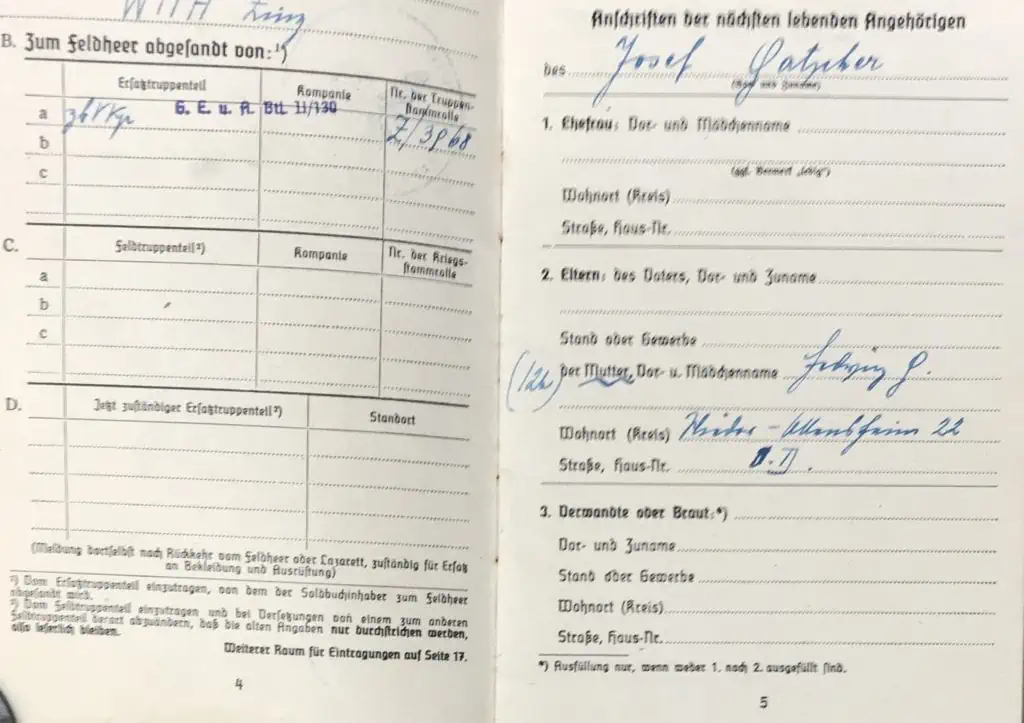 WMA Linz
B. Zum Feldheer abgesandt von:¹)
Ersatztruppenteil
Kompanie
Nr. der Truppen-
stammrolle
a
G. E. u. A. Btl. II/130
b
Z/3968
c
C.
Feldtruppenteil²)
Kompanie
Nr. der Kriegs-
stammrolle
a
b
c
D.
Jetzt zuständiger Ersatztruppenteil²)
Standort
(Meldung dortselbst nach Rückkehr vom Feldheer oder Lazarett, zuständig für Ersatz
an Bekleidung und Ausrüstung)
¹) Vom Ersatztruppenteil einzutragen, von dem der Soldbuchinhaber zum Feldheer
abgesandt wird.
²) Vom Feldtruppenteil einzutragen und bei Versetzungen von einem zum anderen
Feldtruppenteil derart abzuändern, daß die alten Angaben nur durchstrichen werden,
also leserlich bleiben.
Weiterer Raum für Eintragungen auf Seite 17.
4
Anschriften der nächsten lebenden Angehörigen
des Josef Gatscher
(Vor- und Zuname)
1. Ehefrau: Vor- und Mädchenname
(ggf. Vermerk „ledig")
Wohnort (Kreis)
Straße, Haus-Nr.
2. Eltern: des Vaters, Vor- und Zuname
Stand oder Gewerbe
(12a) der Mutter, Vor- u. Mädchenname Hedwig G.
Wohnort (Kreis) Nieder-Ottensheim 22
Straße, Haus-Nr.
3. Verwandte oder Braut:*)
Vor- und Zuname
Stand oder Gewerbe
Wohnort (Kreis)
Straße, Haus-Nr.
*) Ausfüllung nur, wenn weder 1. noch 2. ausgefüllt sind.
5